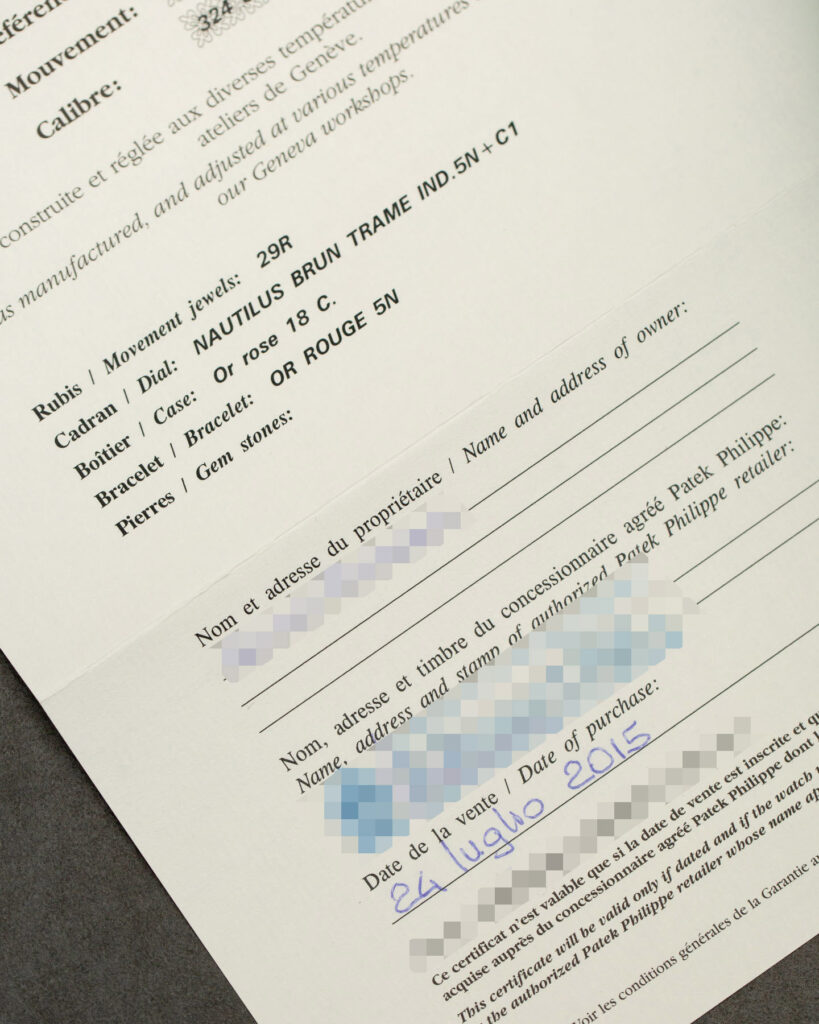 Mouvement:
324
Calibre:
construite et réglée aux diverses
ateliers de Genève.
manufactured, and adjusted at various temperatures
our Geneva workshops.
Rubis / Movement jewels: 29R
Cadran / Dial: NAUTILUS BRUN TRAME IND.5N+C1
Boîtier / Case: Or rose 18 C.
Bracelet / Bracelet: OR ROUGE 5N
Pierres / Gem stones:
Nom et adresse du propriétaire / Name and address of owner:
Nom, adresse et timbre du concessionnaire agréé Patek Philippe:
Name, address and stamp of authorized Patek Philippe retailer:
Date de la vente / Date of purchase:
24 luglio 2015
Ce certificat n'est valable que si la date de vente est inscrite et
acquise auprès du concessionnaire agréé Patek Philippe dont
This certificate will be valid only if dated and if the watch
the authorized Patek Philippe retailer whose name
Voir les conditions générales de la Garantie